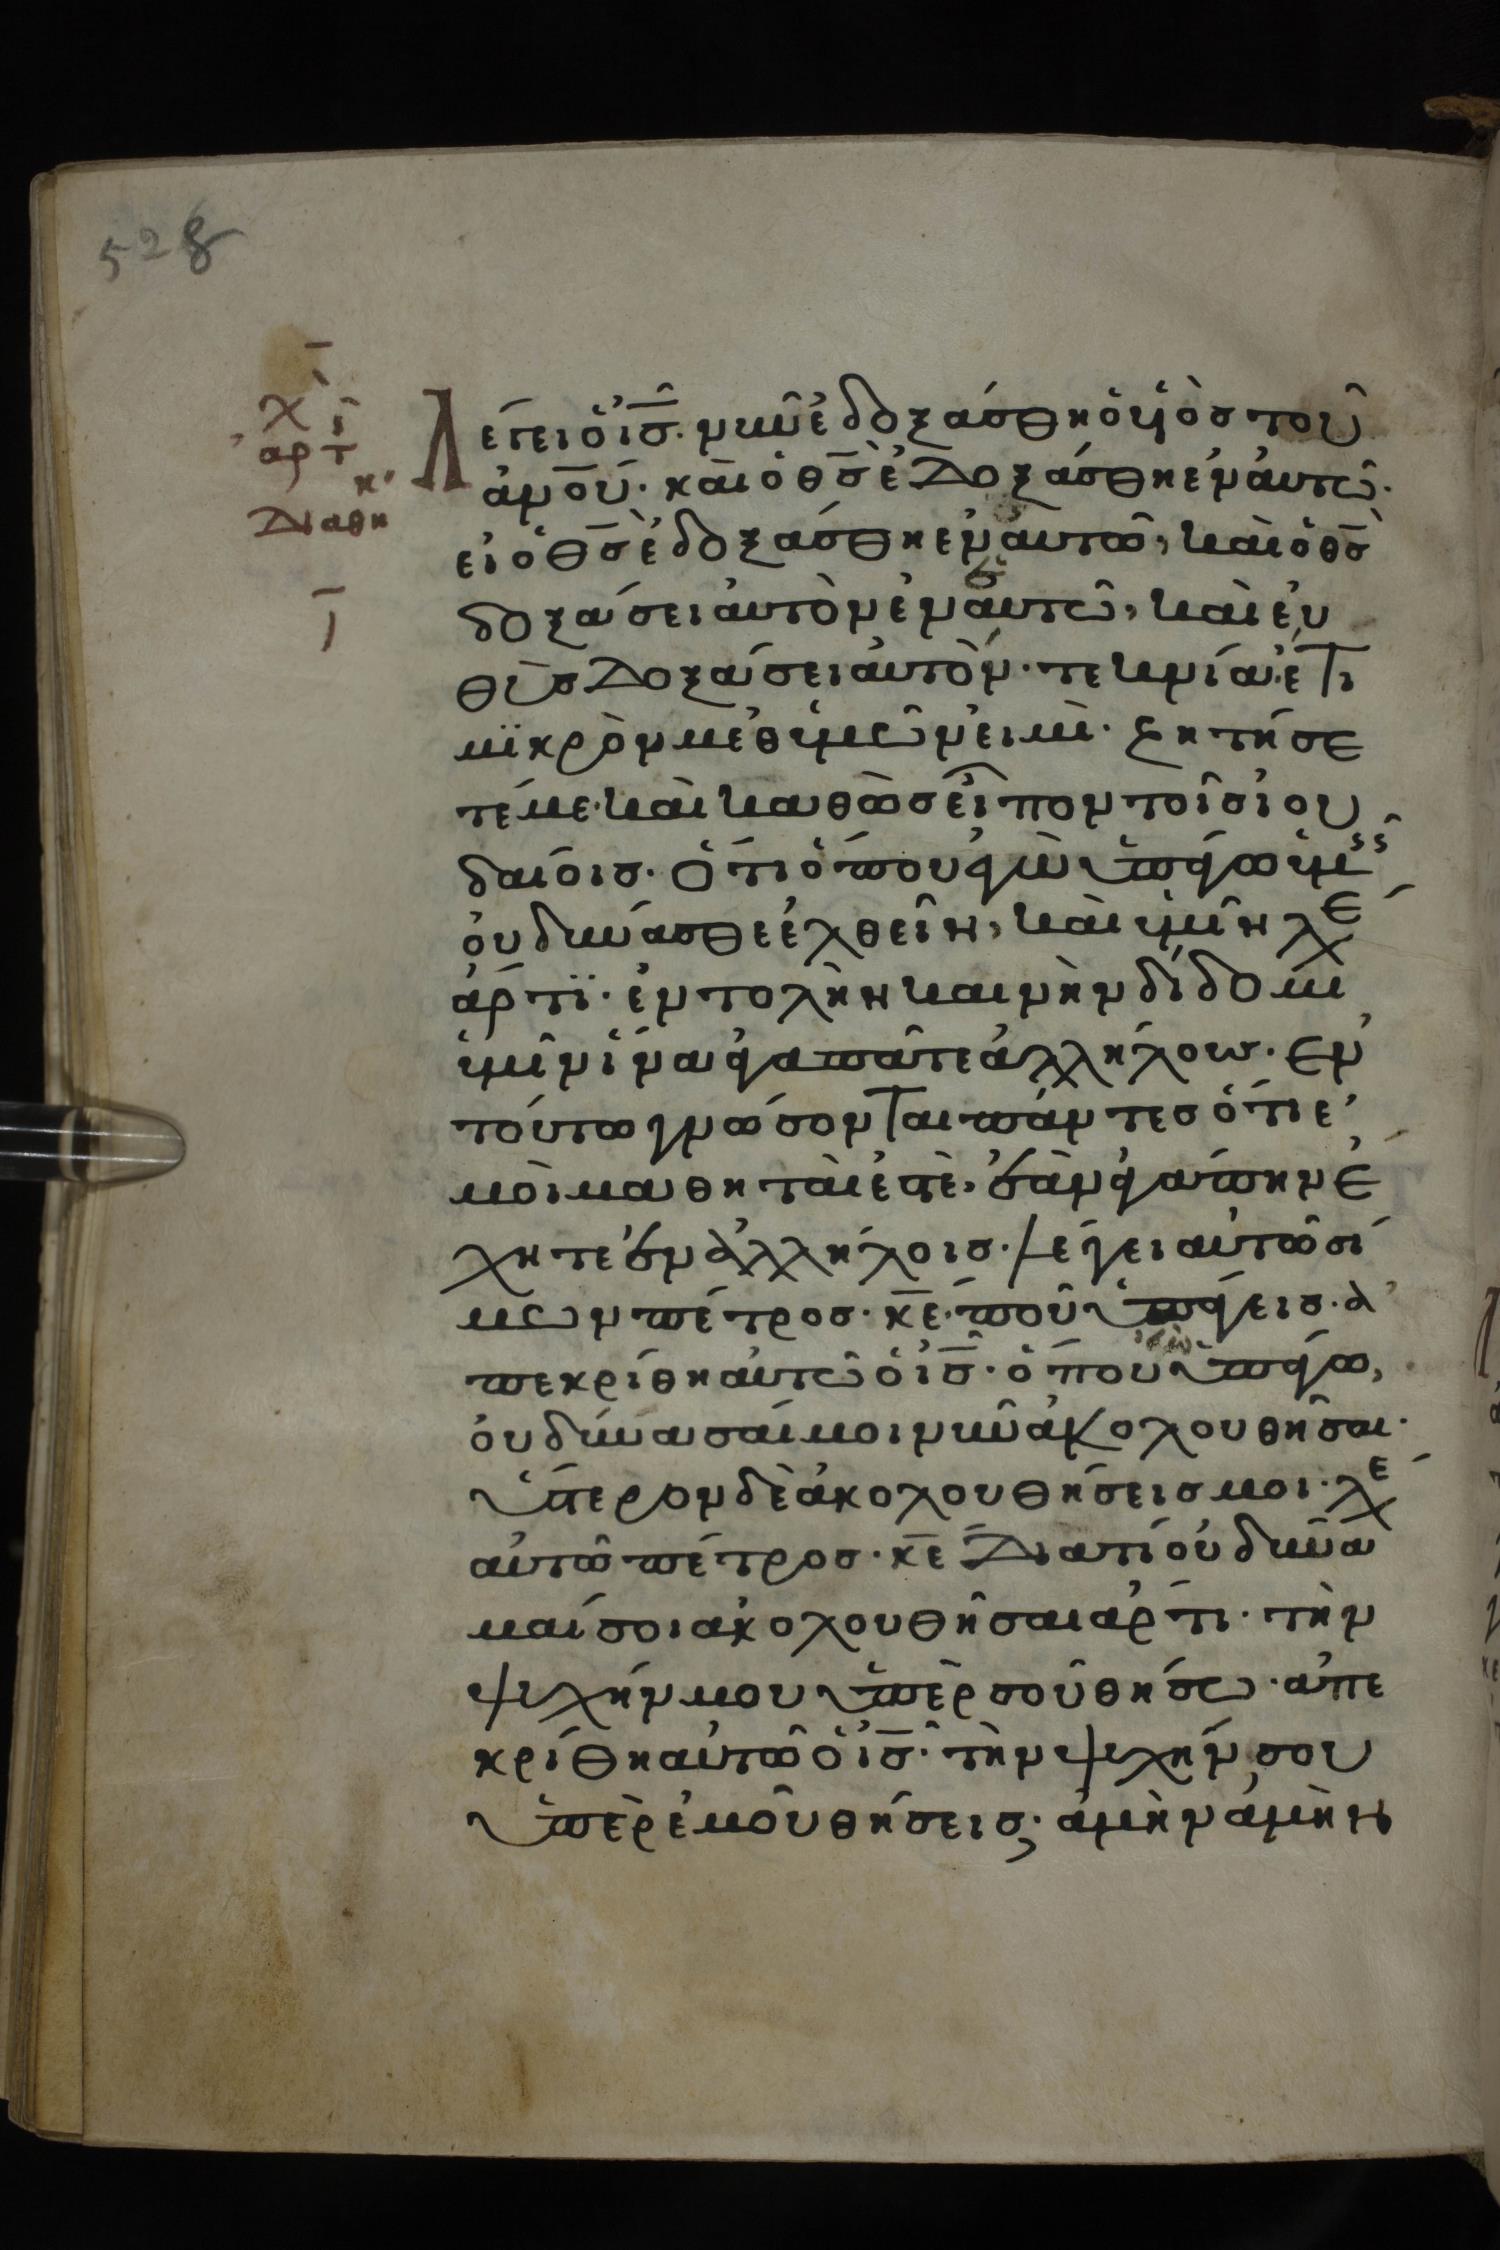 528
χ
ἀρτι
κ'
Διαθη
Λέγει ὁ ἰ̅σ̅. νῦν ἐδοξάσθη ὁ υἱὸσ τοῦ
ἀ̅ν̅ο̅υ̅. καὶ ὁ θ̅σ̅ ἐδοξάσθη ἐν αυτῶ.
εἰ ὁ θ̅σ̅ ἐδοξάσθη ἐν αὐτῶ, καὶ ὁ θ̅σ̅
δοξάσει αυτὸν ἐν αυτῶ, καὶ εὐ
θὺσ δοξάσει αυτόν. τεκνία. ἔτι
μϊκρὸν μεθ ὑμῶν εἰμὶ. ζητήσε
τέ με. καὶ καθὼσ εἶπον τοῖσ ἰου
δαίοισ. ὅτι ὅπου ἐγὼ ὑπάγω ὑμεῖς
οὐ δύνασθε ἐλθεῖν, καὶ ὑμῖν λέ
ἄρτϊ. ἐντολὴν καινὴν δίδωμι
ὑμῖν ἵνα ἀγαπᾶτε ἀλλήλουσ. ἐν
τούτω γνώσονται πάντεσ ὅτι ἐ
μοὶ μαθηταὶ ἐστὲ, ἐὰν ἀγάπην ἔ
χητε ἐν ἀλλήλοισ. λέγει αὐτῶ σί
μων πέτροσ. κ̅ε̅. ποῦ ὑπάγεισ. ἀ
πεκρίθη αυτῶ ὁ ἰ̅σ̅. ὅπου ὑπάγω,
οὐ δύνασαί μοι νῦν ἀκολουθῆσαι.
ὕστερον δὲ ἀκολουθήσεισ μοι. λέ
αὐτῶ πέτροσ. κ̅ε̅ διατί οὐ δύνα
μαί σοι ακολουθῆσαι αρτι. τὴν
ψυχήν μου ὑπὲρ σοῦ θήσω. ἀπε
κρίθη αὐτῶ ὁ ἰ̅σ̅. τὴν ψυχήν σου
ὑπὲρ ἐμοῦ θήσεισ; ἀμὴν ἀμὴν